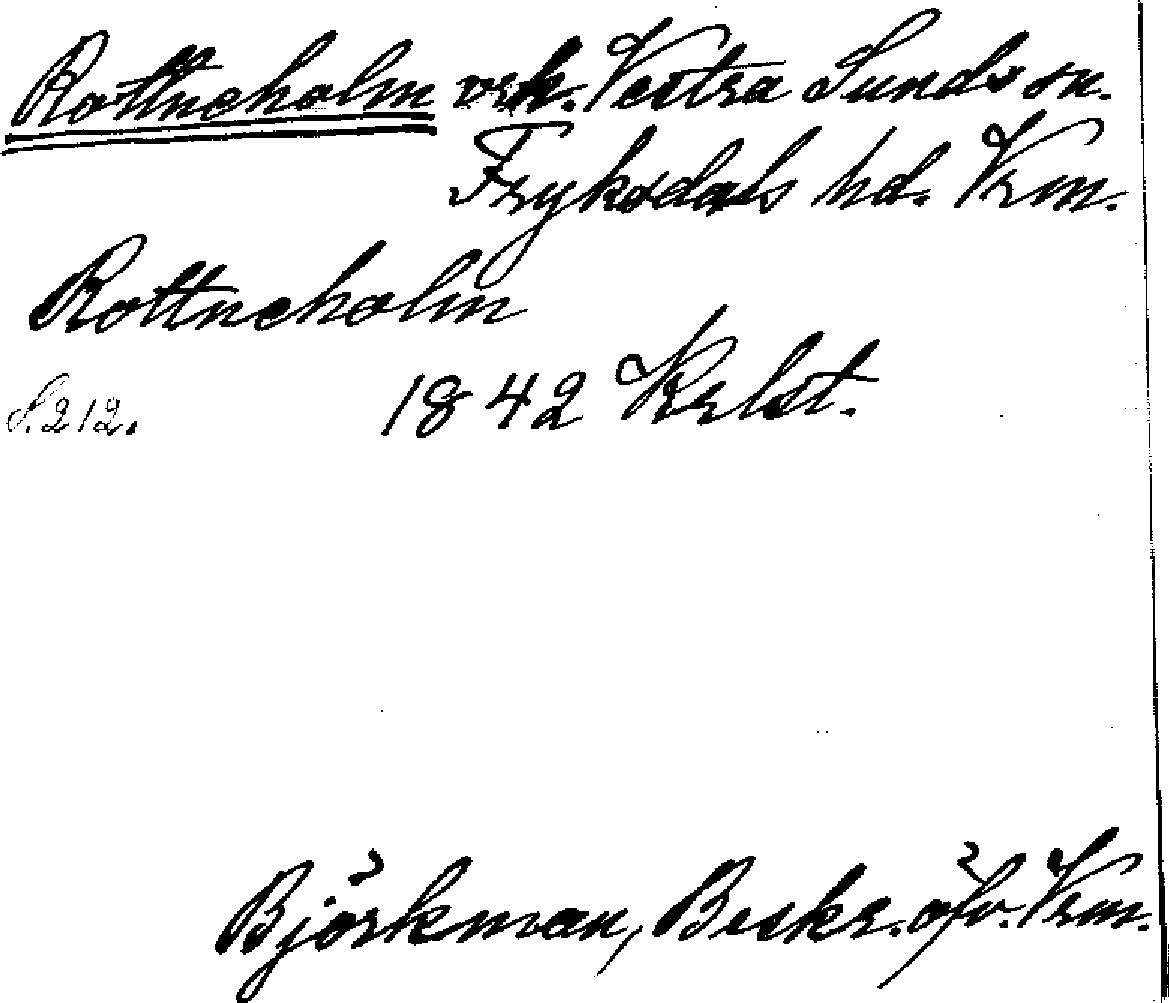 Rottneholm vrk. Vestra Sunds sn.
Fryksdals hd. Vrm.
Rottneholm
S. 212. 1842 Krlst.
Björkman, Beskr. öfv. Vrm.